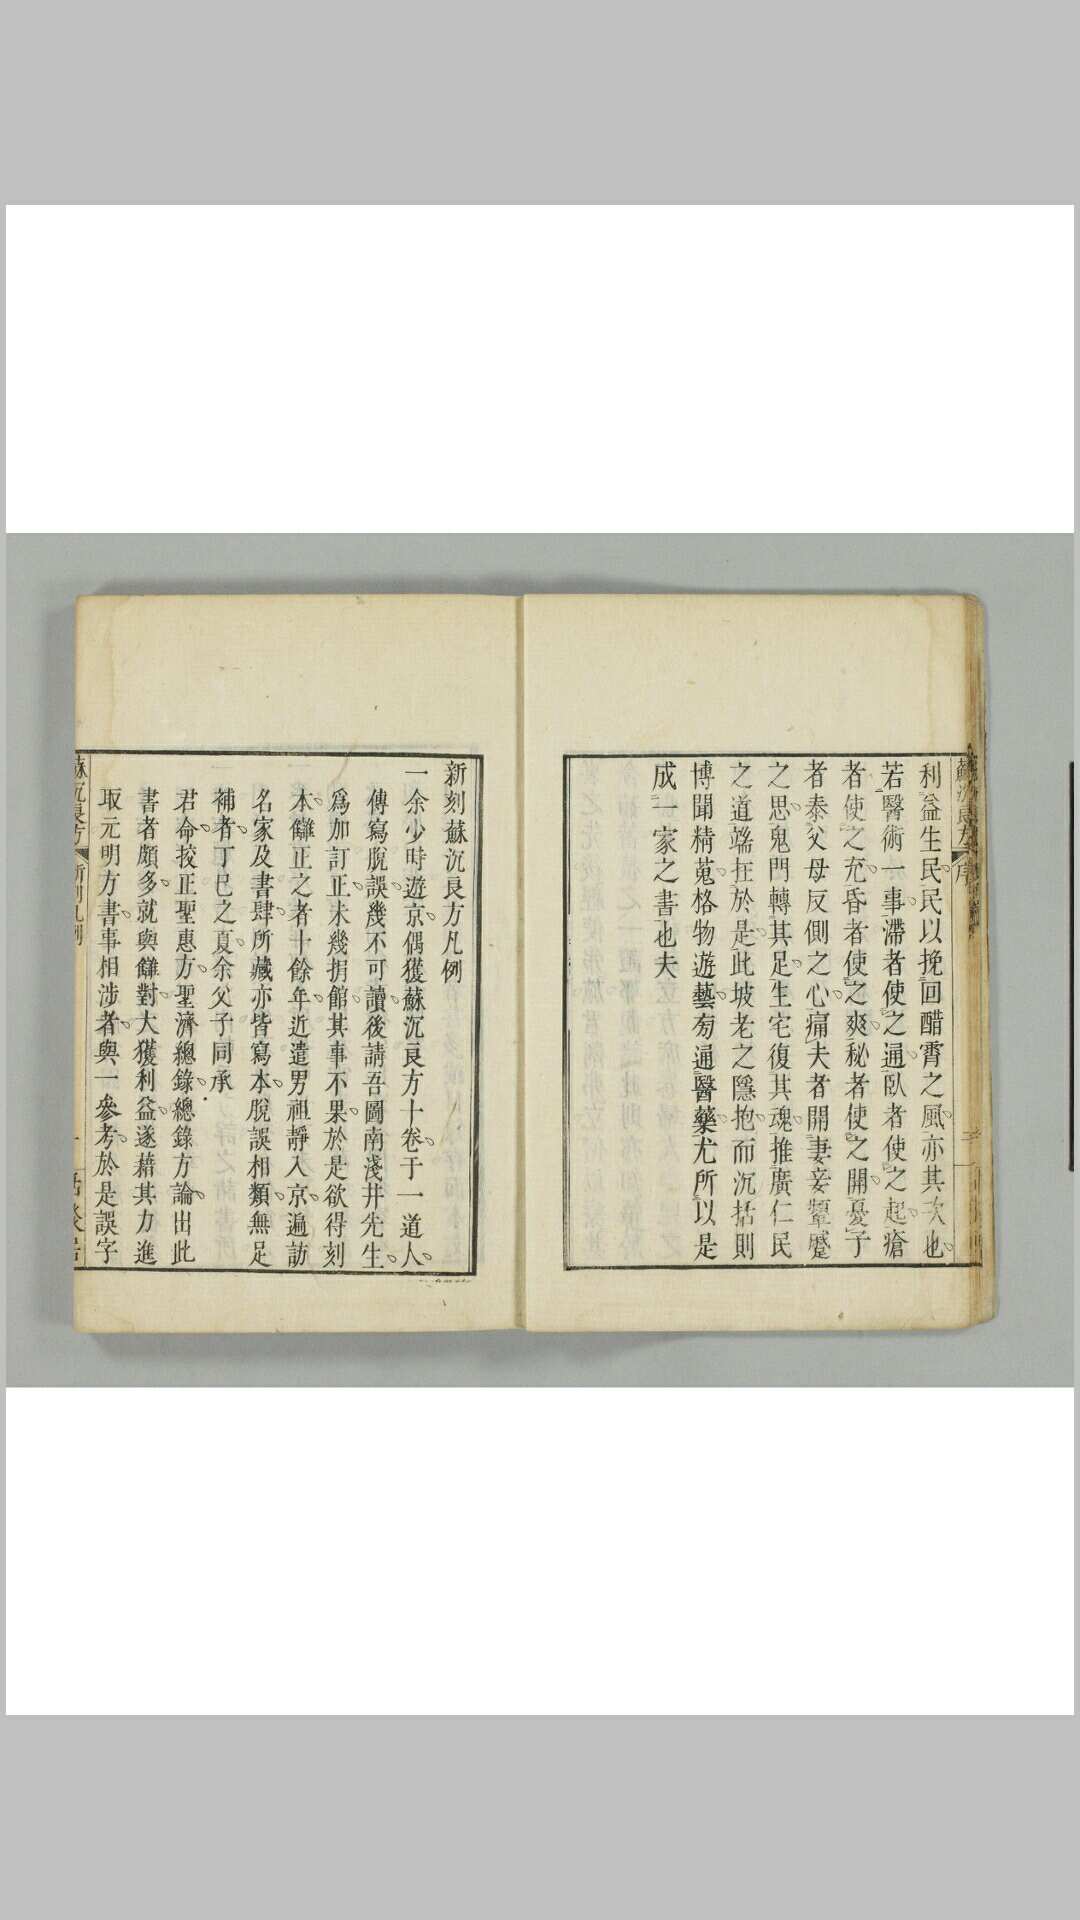 利益生民民以挽回醋霄之風亦其次也
若醫術一事滯者使之通臥者使之起瘡
者使之充昏者使之爽秘者使之開憂子
者泰父母反側之心痛夫者開妻妾顰蹙
之思鬼門轉其足生宅復其魂推廣仁民
之道端在於是此坡老之隱抱而沉括則
博聞精蒐格物遊藝旁通醫藥尤所以是
成一家之書也夫
新刻蘇沉良方凡例
一余少時遊京偶獲蘇沉良方十卷于一道人
傳寫脫誤幾不可讀後請吾圖南淺井先生
爲加訂正未幾捐館其事不果於是欲得刻
本讎正之者十餘年近遣男祖靜入京遍訪
名家及書肆所藏亦皆寫本脫誤相類無足
補者丁巳之夏余父子同承
君命挍正聖惠方聖濟總錄總錄方論出此
書者頗多就與讎對大獲利益遂藉其力進
取元明方書事相涉者與一參考於是誤字